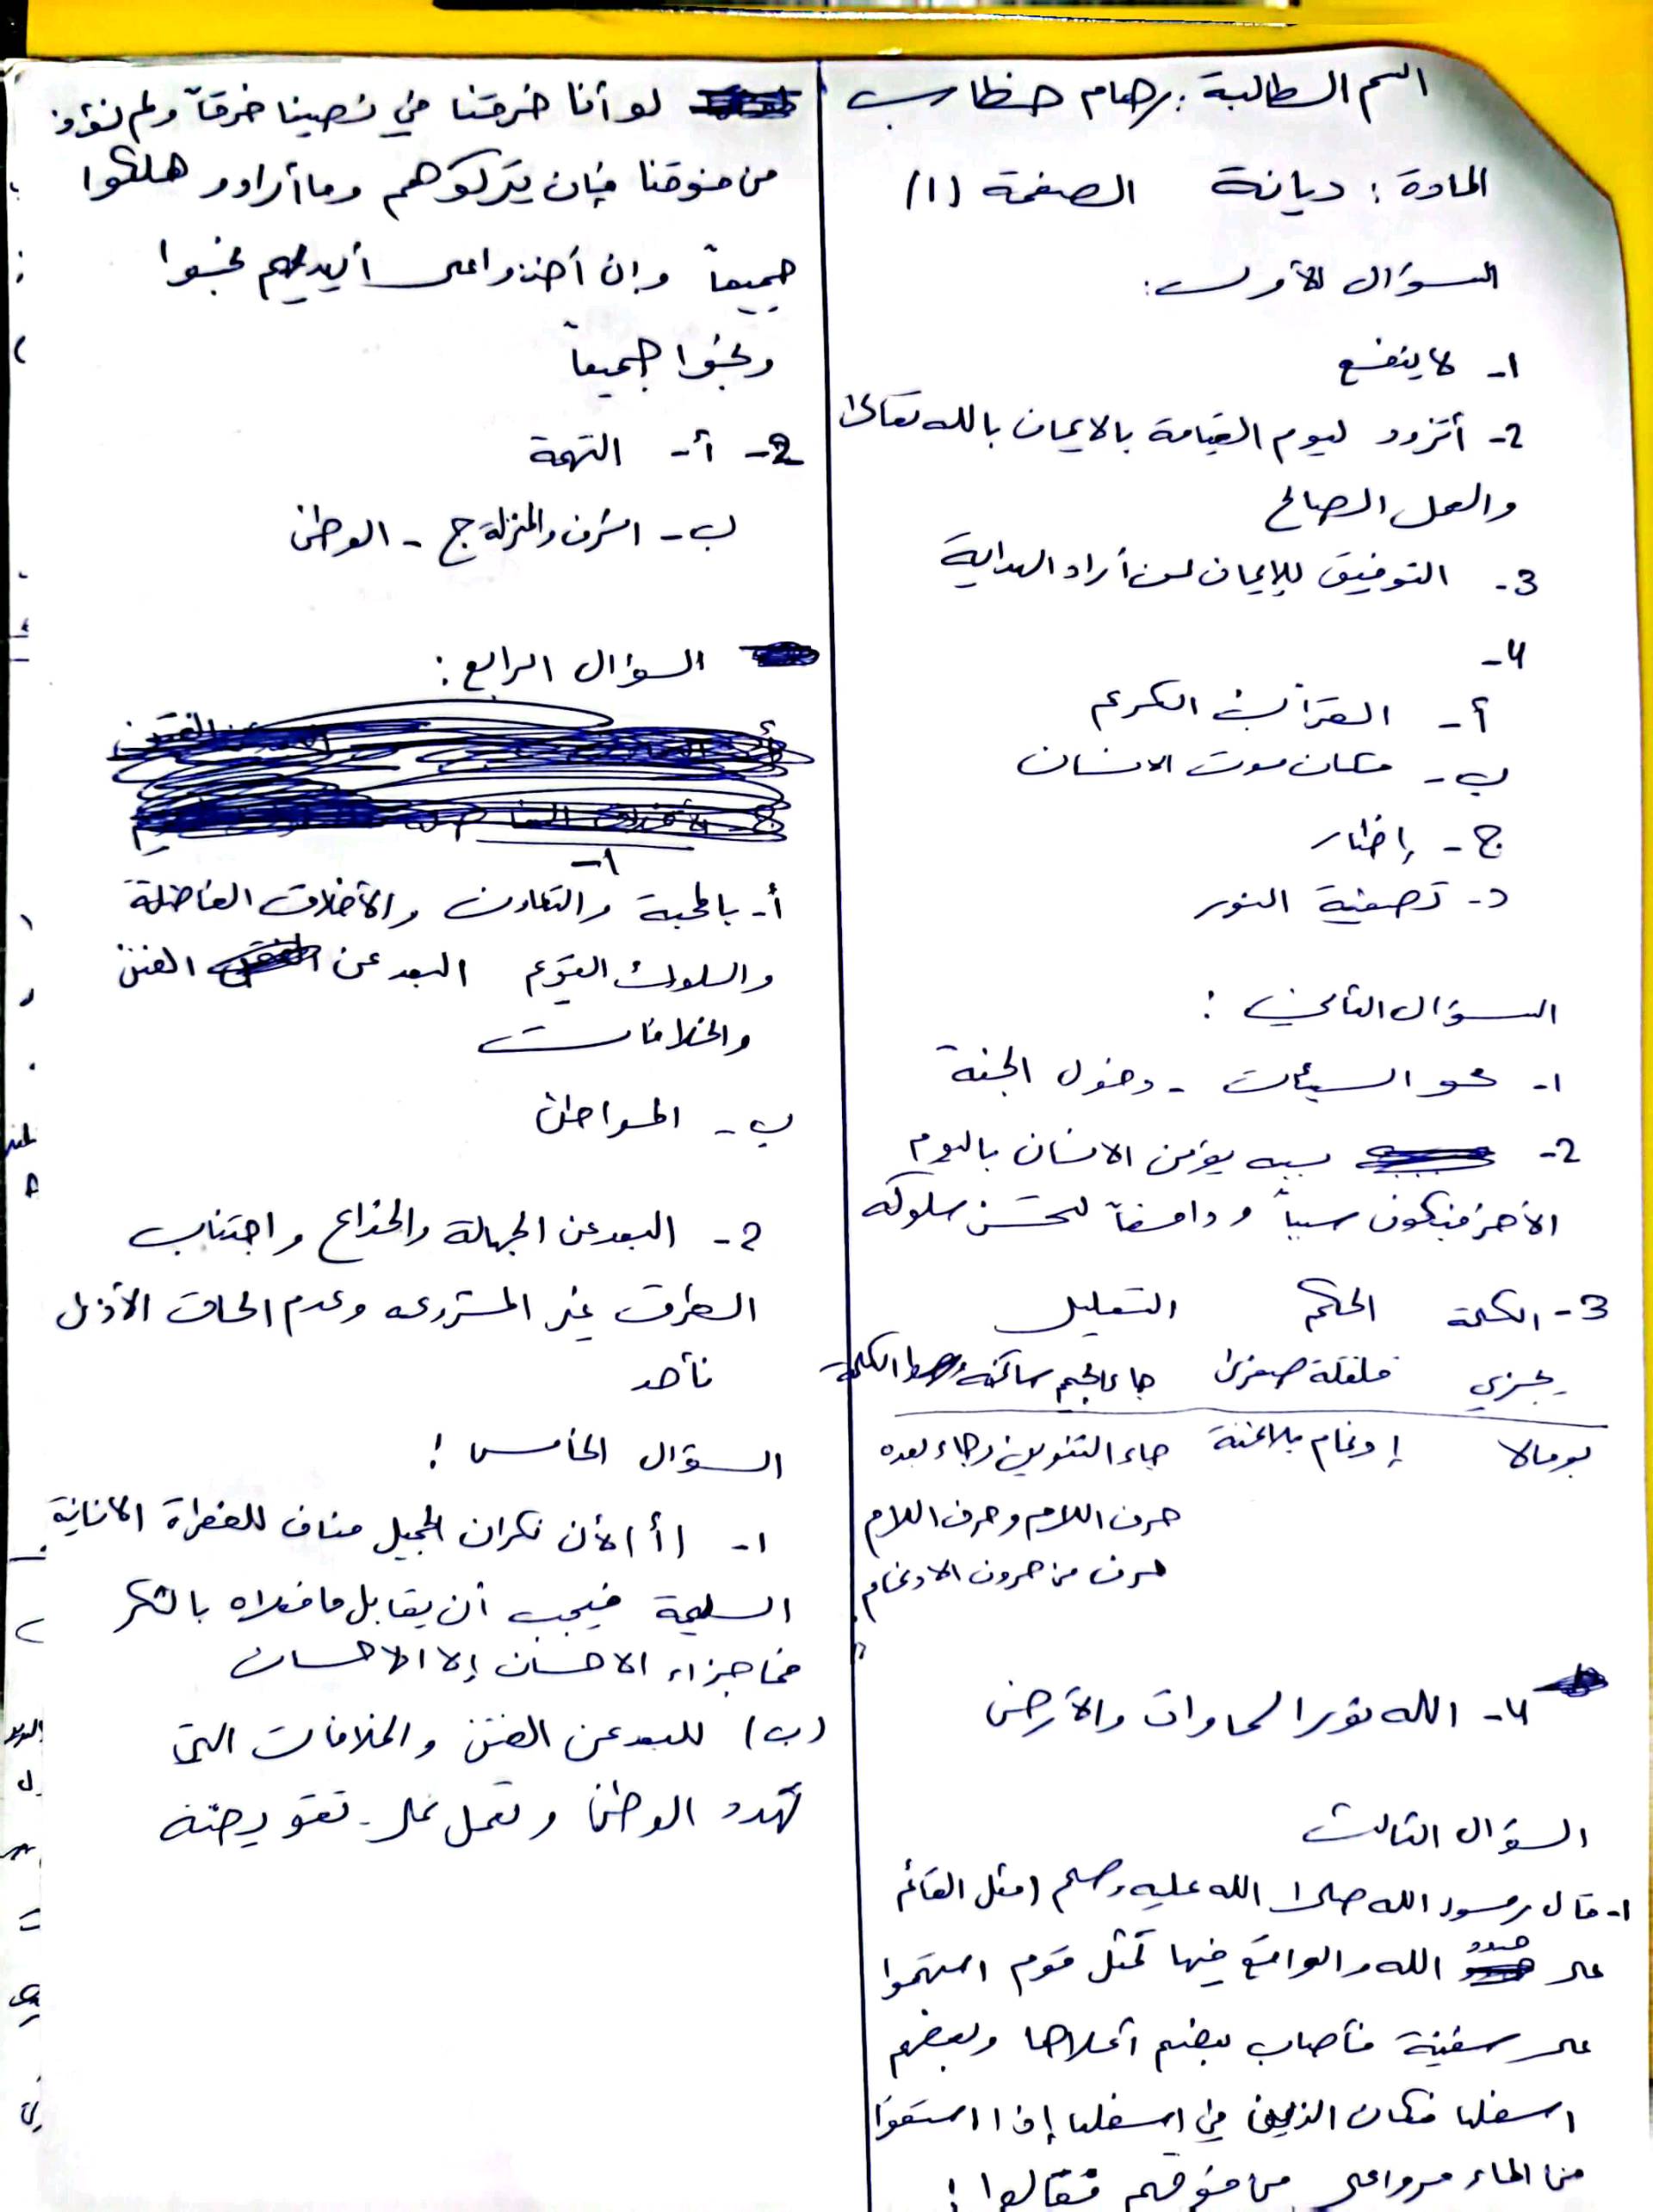 اسم الطالبة: رهام خطاب
المادة: ديانة الصفحة (١)
السؤال الأول:
1- لا ينفع
2- أتزود ليوم القيامة بالايمان بالله تعالى
والعمل الصالح
3- التوفيق للإيمان لمن أراد الهداية
4-
أ- القرآن الكريم
ب- مكان موت الانسان
ج- إظهار
د- تصفية النور
السؤال الثاني:
1- محو السيئات - دخول الجنة
2- يؤمن الانسان باليوم
الآخر فيكون سبباً ودافعاً لحسن سلوكه
3- الكلمة الحكم التعليل
يجزي قلقلة صغرى جاء الجيم ساكنة الكلمة
يوما لا إدغام بلا غنة جاء التنوين وجاء بعده
حرف اللام وحرف اللام
حرف من حروف الادغام
4- الله نور السماوات والأرض
السؤال الثالث
1- قال رسول الله صلى الله عليه وسلم (مثل القائم
على حدود الله والواقع فيها كمثل قوم استهموا
على سفينة فأصاب بعضهم أعلاها وبعضهم
اسفلها فكان الذين في اسفلها إذا استقوا
من الماء مروا على من فوقهم فقالوا:
لو أنا خرقنا في نصيبنا خرقاً ولم نؤذ
من فوقنا فإن يتركوهم وما أرادو هلكوا
جميعاً وإن أخذوا على أيديهم نجوا
ونجوا جميعاً
2- أ- التهمة
ب- الشرف والمنزلة ج- الوطن
السؤال الرابع:
1-
أ- بالمحبة والتعاون والأخلاق الفاضلة
والسلوك القويم البعد عن الفتن
والخلافات
ب- المواطن
2- البعد عن الجهالة والخداع واجتناب
الطرق غير المشروعه وعدم الحاق الأذى
بأحد
السؤال الخامس:
1- (أ) لأن نكران الجميل مناف للفطرة الانسانية
السليمة فيجب أن يقابل ما فعلاه بالشكر
فما جزاء الاحسان إلا الاحسان
(ب) للبعد عن الفتن والخلافات التي
تهدد الوطن وتعمل على